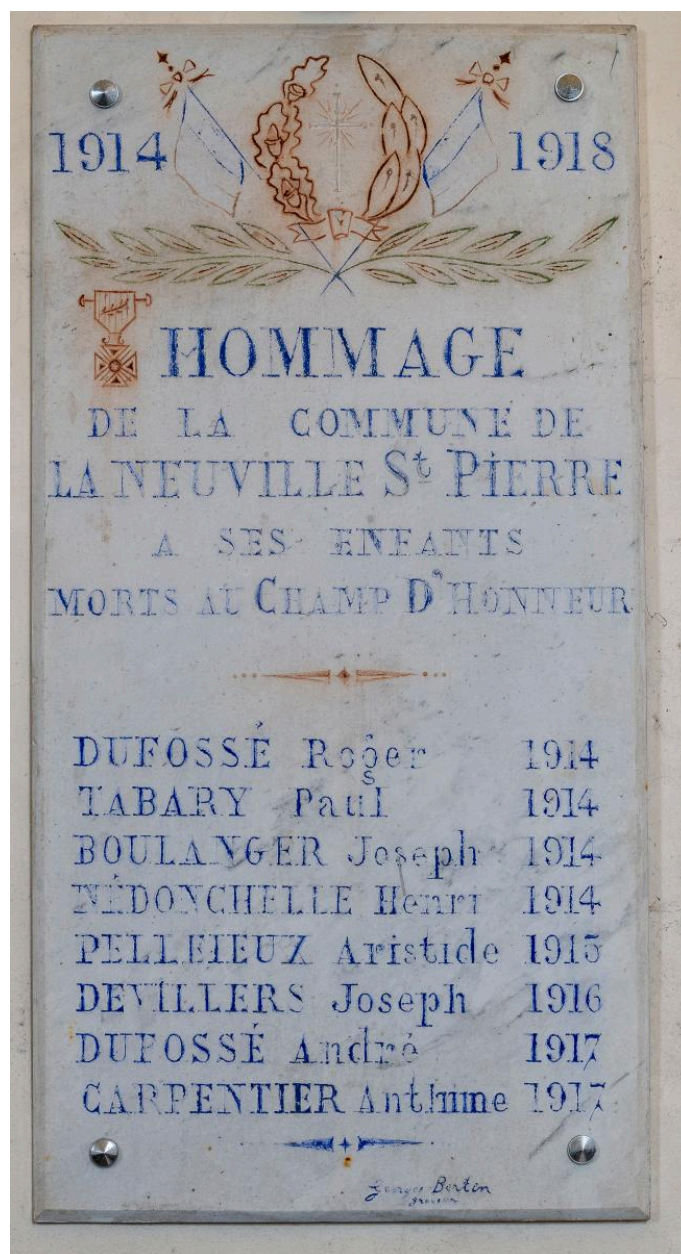 1914 1918
HOMMAGE
DE LA COMMUNE DE
LA NEUVILLE St PIERRE
A SES ENFANTS
MORTS AU CHAMP D'HONNEUR
DUFOSSÉ Roger 1914
TABARY Paul 1914
BOULANGER Joseph 1914
NÉDONCHELLE Henri 1914
PELLEIEUX Aristide 1915
DEVILLERS Joseph 1916
DUFOSSÉ André 1917
CARPENTIER Anthime 1917
Georges Berten
graveur